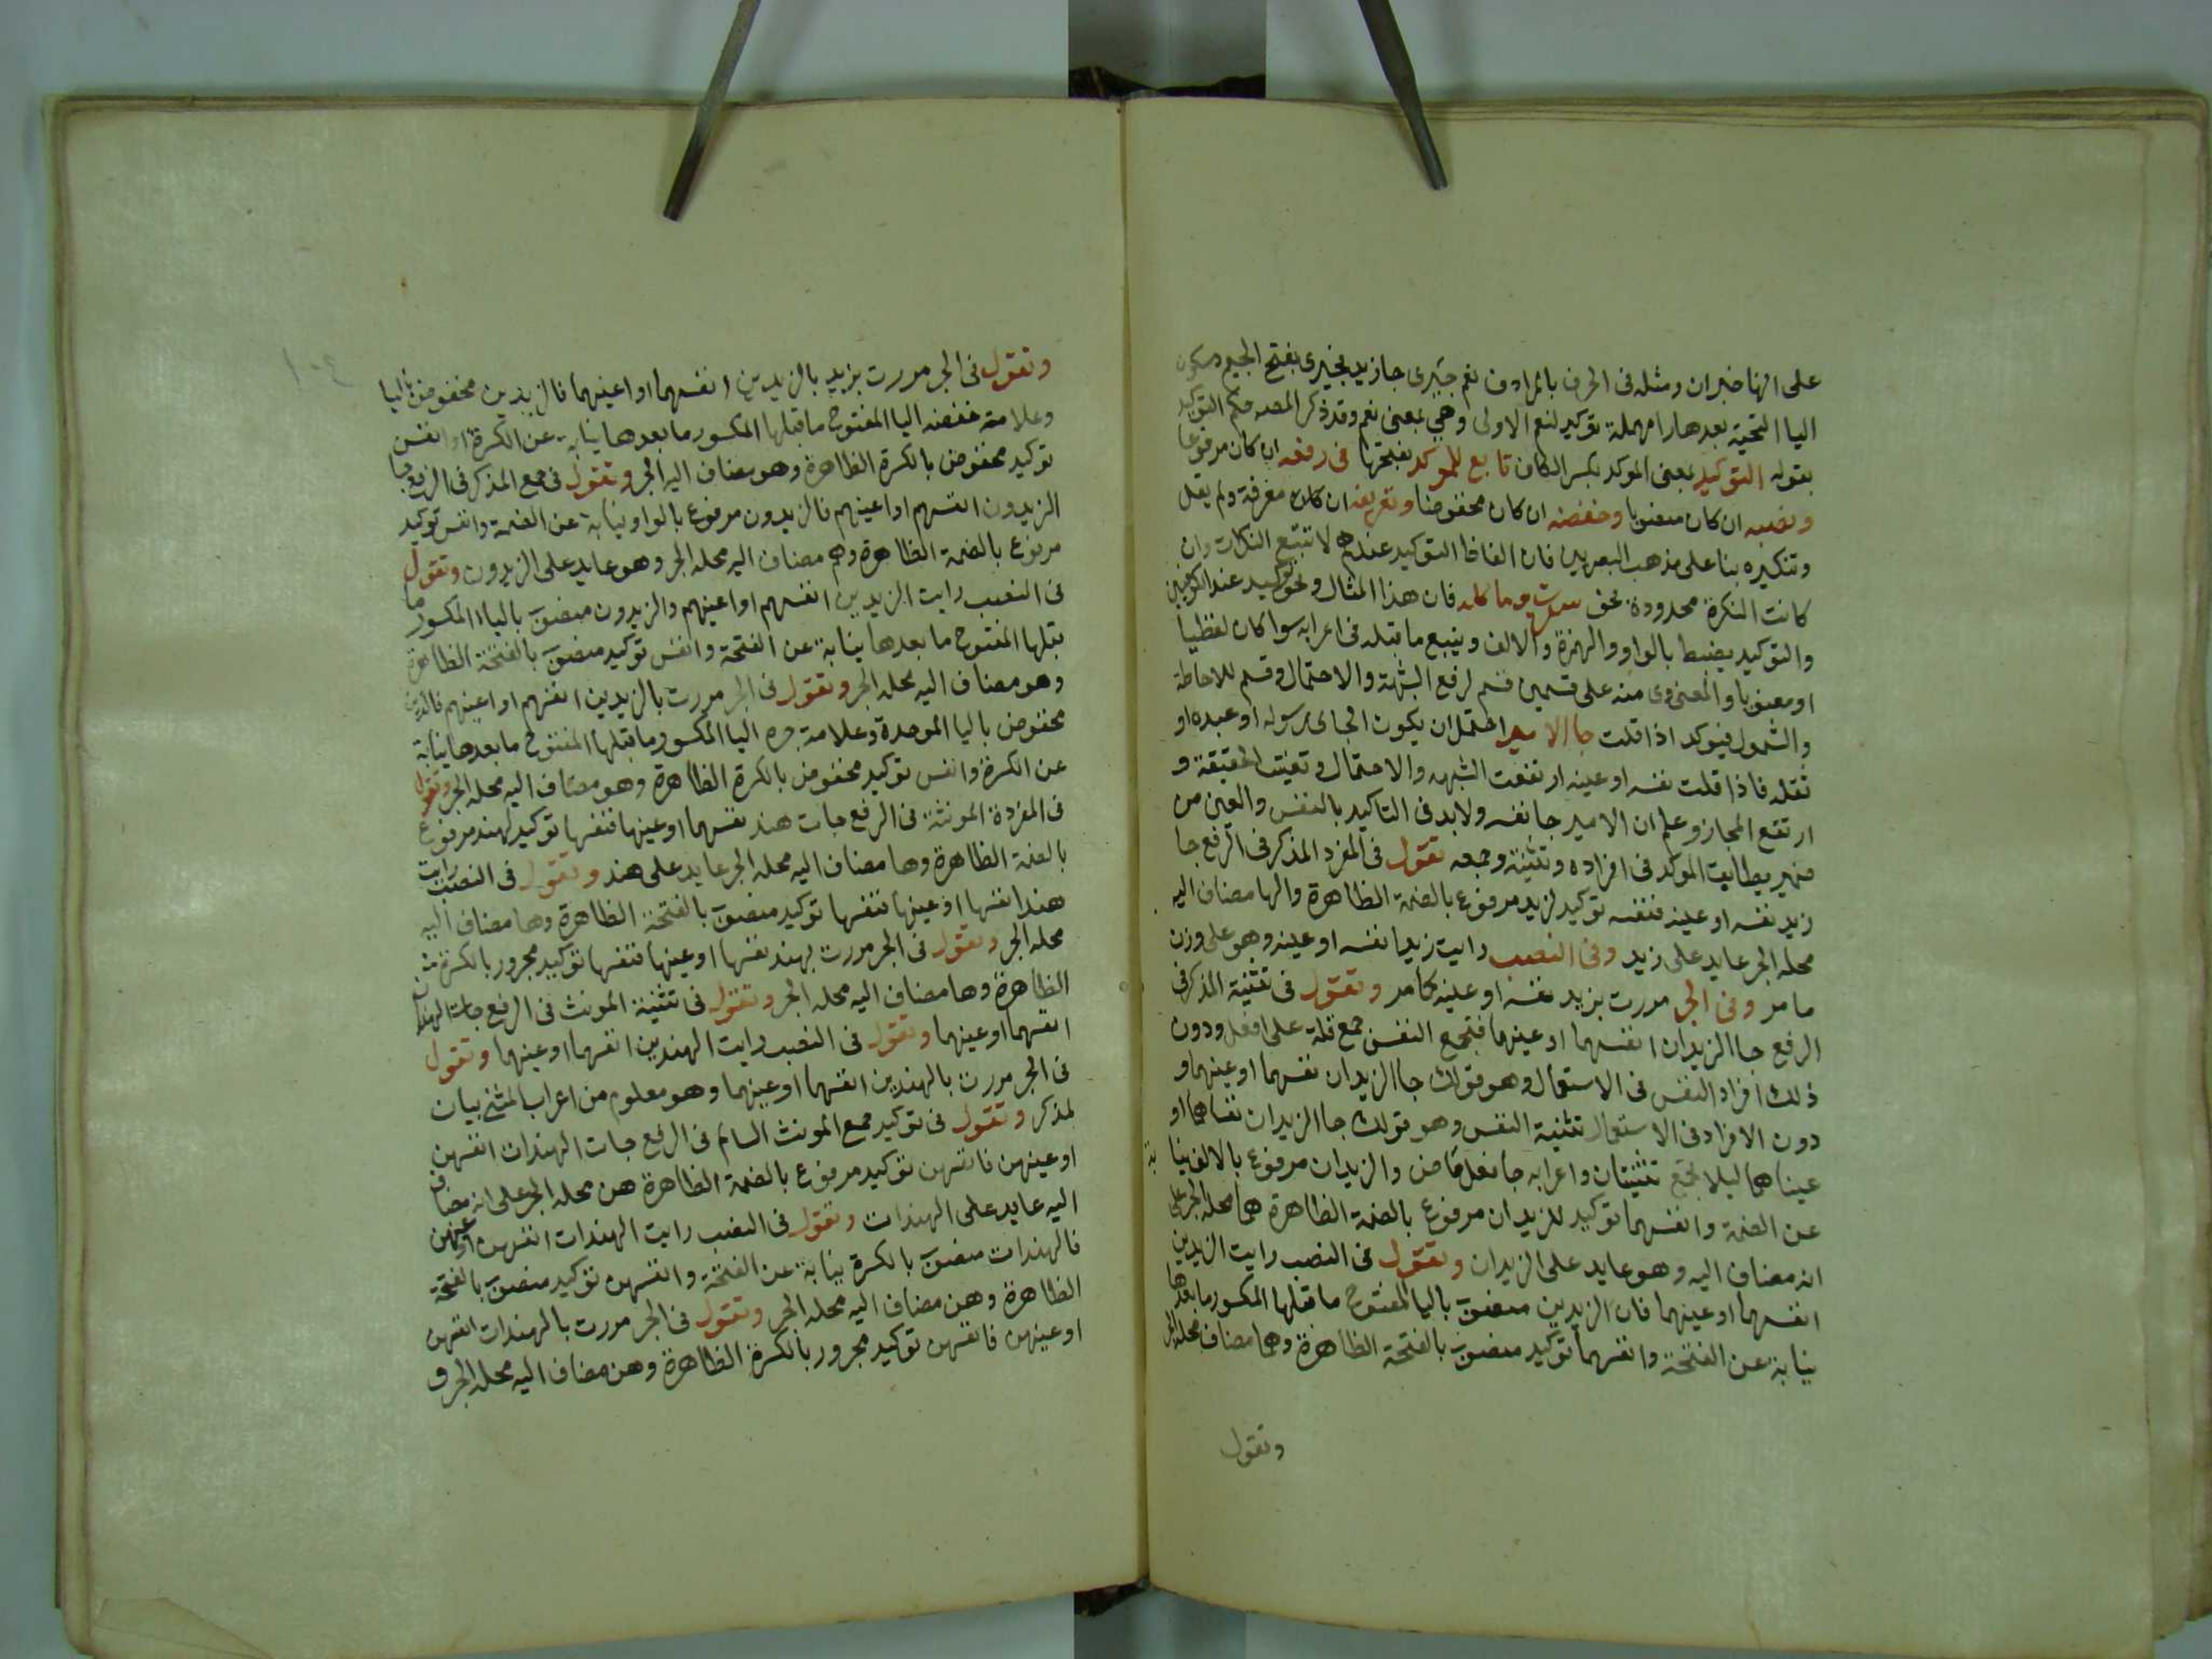 على انها خبران ومثله فى الحرف بالمرادف نعم جيرى جا زيد بخيرى بفتح الجيم وسكون
اليا التحتية بعدها را مهملة توكيد لنعم الاولى وهي بمعنى نعم وقد ذكر المصه حكم التوكيد
بقوله التوكيد بمعنى الموكد بكسر الكاف تابع للموكد بفتحها فى رفعه ان كان مرفوعا
ونصبه ان كان منصوبا وخفضه ان كان مخفوضا وتعريفه ان كان معرفة ولم يقل
وتنكيره بنا على مذهب البصريين فان الفاظ التوكيد عندهم لا تتبع النكرات وان
كانت النكرة محدودة نحو كله فان هذا المثال ونحوه توكيد عند الكوفيين
والتوكيد يضبط بالواو والهمزة والالف ويتبع ما قبله فى اعرابه سوا كان لفظيا
او معنويا والمعنوى منه على قسمين قسم لرفع الشبهة والاحتمال وقسم للاحاطة
والشمول فيوكد اذا قلت جا الامير احتمل ان يكون الجاى رسوله او عبده او
ثقله فاذا قلت نفسه او عينه ارتفعت الشبهه والاحتمال وتعينت الحقيقة و
ارتفع المجاز وعلم ان الامير جا نفسه ولابد فى التاكيد بالنفس والعين من
ضمير يطابق الموكد فى افراده وتثنيته وجمعه تقول فى المفرد المذكر فى الرفع جا
زيد نفسه او عينه فنفسه توكيد لزيد مرفوع بالضمة الظاهرة والها مضاف اليه
محله الجر عايد على زيد وفى النصب رايت زيدا نفسه او عينه وهو على وزن
ما مر وفى الجر مررت بزيد نفسه او عينه كامر وتقول فى تثنية المذكر فى
الرفع جا الزيدان انفسهما او عينهما فتجمع النفس جمع قلة على افعل ودون
ذلك افراد النفس فى الاستعمال وهو قولك جا الزيدان نفسهما او عينهما و
دون الافراد فى الاستعمال تثنية النفس وهو قولك جا الزيدان نفساهما او
عيناهما ليلا تجتمع تثنيتان واعرابه جا فعل ماض والزيدان مرفوع بالالف نيابة
عن الضمة وانفسهما توكيد للزيدان مرفوع بالضمة الظاهرة هما محله الجر على
انه مضاف اليه وهو عايد على الزيدان وتقول فى النصب رايت الزيدين
انفسهما او عينهما فان الزيدين منصوب باليا المفتوح ما قبلها المكسور ما بعدها
نيابة عن الفتحة وانفسهما توكيد منصوب بالفتحة الظاهرة وهما مضاف محله الجر
وتقول
١٠٤
وتقول فى الجر مررت بزيد بالزيدين انفسهما او اعينهما فالزيدين مخفوض باليا
وعلامة خفضه اليا المفتوح ما قبلها المكسور ما بعدها نيابة عن الكسرة او انفس
توكيد مخفوض بالكسرة الظاهرة وهو مضاف اليه الجر وتقول فى جمع المذكر فى الرفع جا
الزيدون انفسهم او اعينهم فالزيدون مرفوع بالواو نيابة عن الضمة وانفس توكيد
مرفوع بالضمة الظاهرة وهم مضاف اليه محله الجر وهو عايد على الزيدون وتقول
فى النصب رايت الزيدين انفسهم او اعينهم والزيدون منصوب بالياء المكسور ما
قبلها المفتوح ما بعدها نيابة عن الفتحة وانفس توكيد منصوب بالفتحة الظاهرة
وهو مضاف اليه محله الجر وتقول فى الجر مررت بالزيدين انفسهم او اعينهم فالزيدين
مخفوض باليا الموحدة وعلامة جره اليا المكسور ما قبلها المفتوح ما بعدها نيابة
عن الكسرة وانفس توكيد مخفوض بالكسرة الظاهرة وهو مضاف اليه محله الجر وتقول
فى المفردة المونثة فى الرفع جات هند نفسها او عينها فنفسها توكيد لهند مرفوع
بالضمة الظاهرة وها مضاف اليه محله الجر عايد على هند وتقول فى النصب رايت
هندا نفسها او عينها فنفسها توكيد منصوب بالفتحة الظاهرة وها مضاف اليه
محله الجر وتقول فى الجر مررت بهند نفسها او عينها فنفسها توكيد مجرور بالكسرة
الظاهرة وها مضاف اليه محله الجر وتقول فى تثنية المونث فى الرفع جات الهندان
انفسهما او عينهما وتقول فى النصب رايت الهندين انفسهما او عينهما وتقول
فى الجر مررت بالهندين انفسهما او عينهما وهو معلوم من اعراب المثنى بيان
لمذكر وتقول فى توكيد جمع المونث السالم فى الرفع جات الهندات انفسهن
او عينهن فانفسهن توكيد مرفوع بالضمة الظاهرة هن محله الجر على انه مضاف
اليه عايد على الهندات وتقول فى النصب رايت الهندات انفسهن او عينهن
فالهندات منصوب بالكسرة نيابة عن الفتحة وانفسهن توكيد منصوب بالفتحة
الظاهرة وهن مضاف اليه محله الجر وتقول فى الجر مررت بالهندات انفسهن
او عينهن فانفسهن توكيد مجرور بالكسرة الظاهرة وهن مضاف اليه محله الجر و